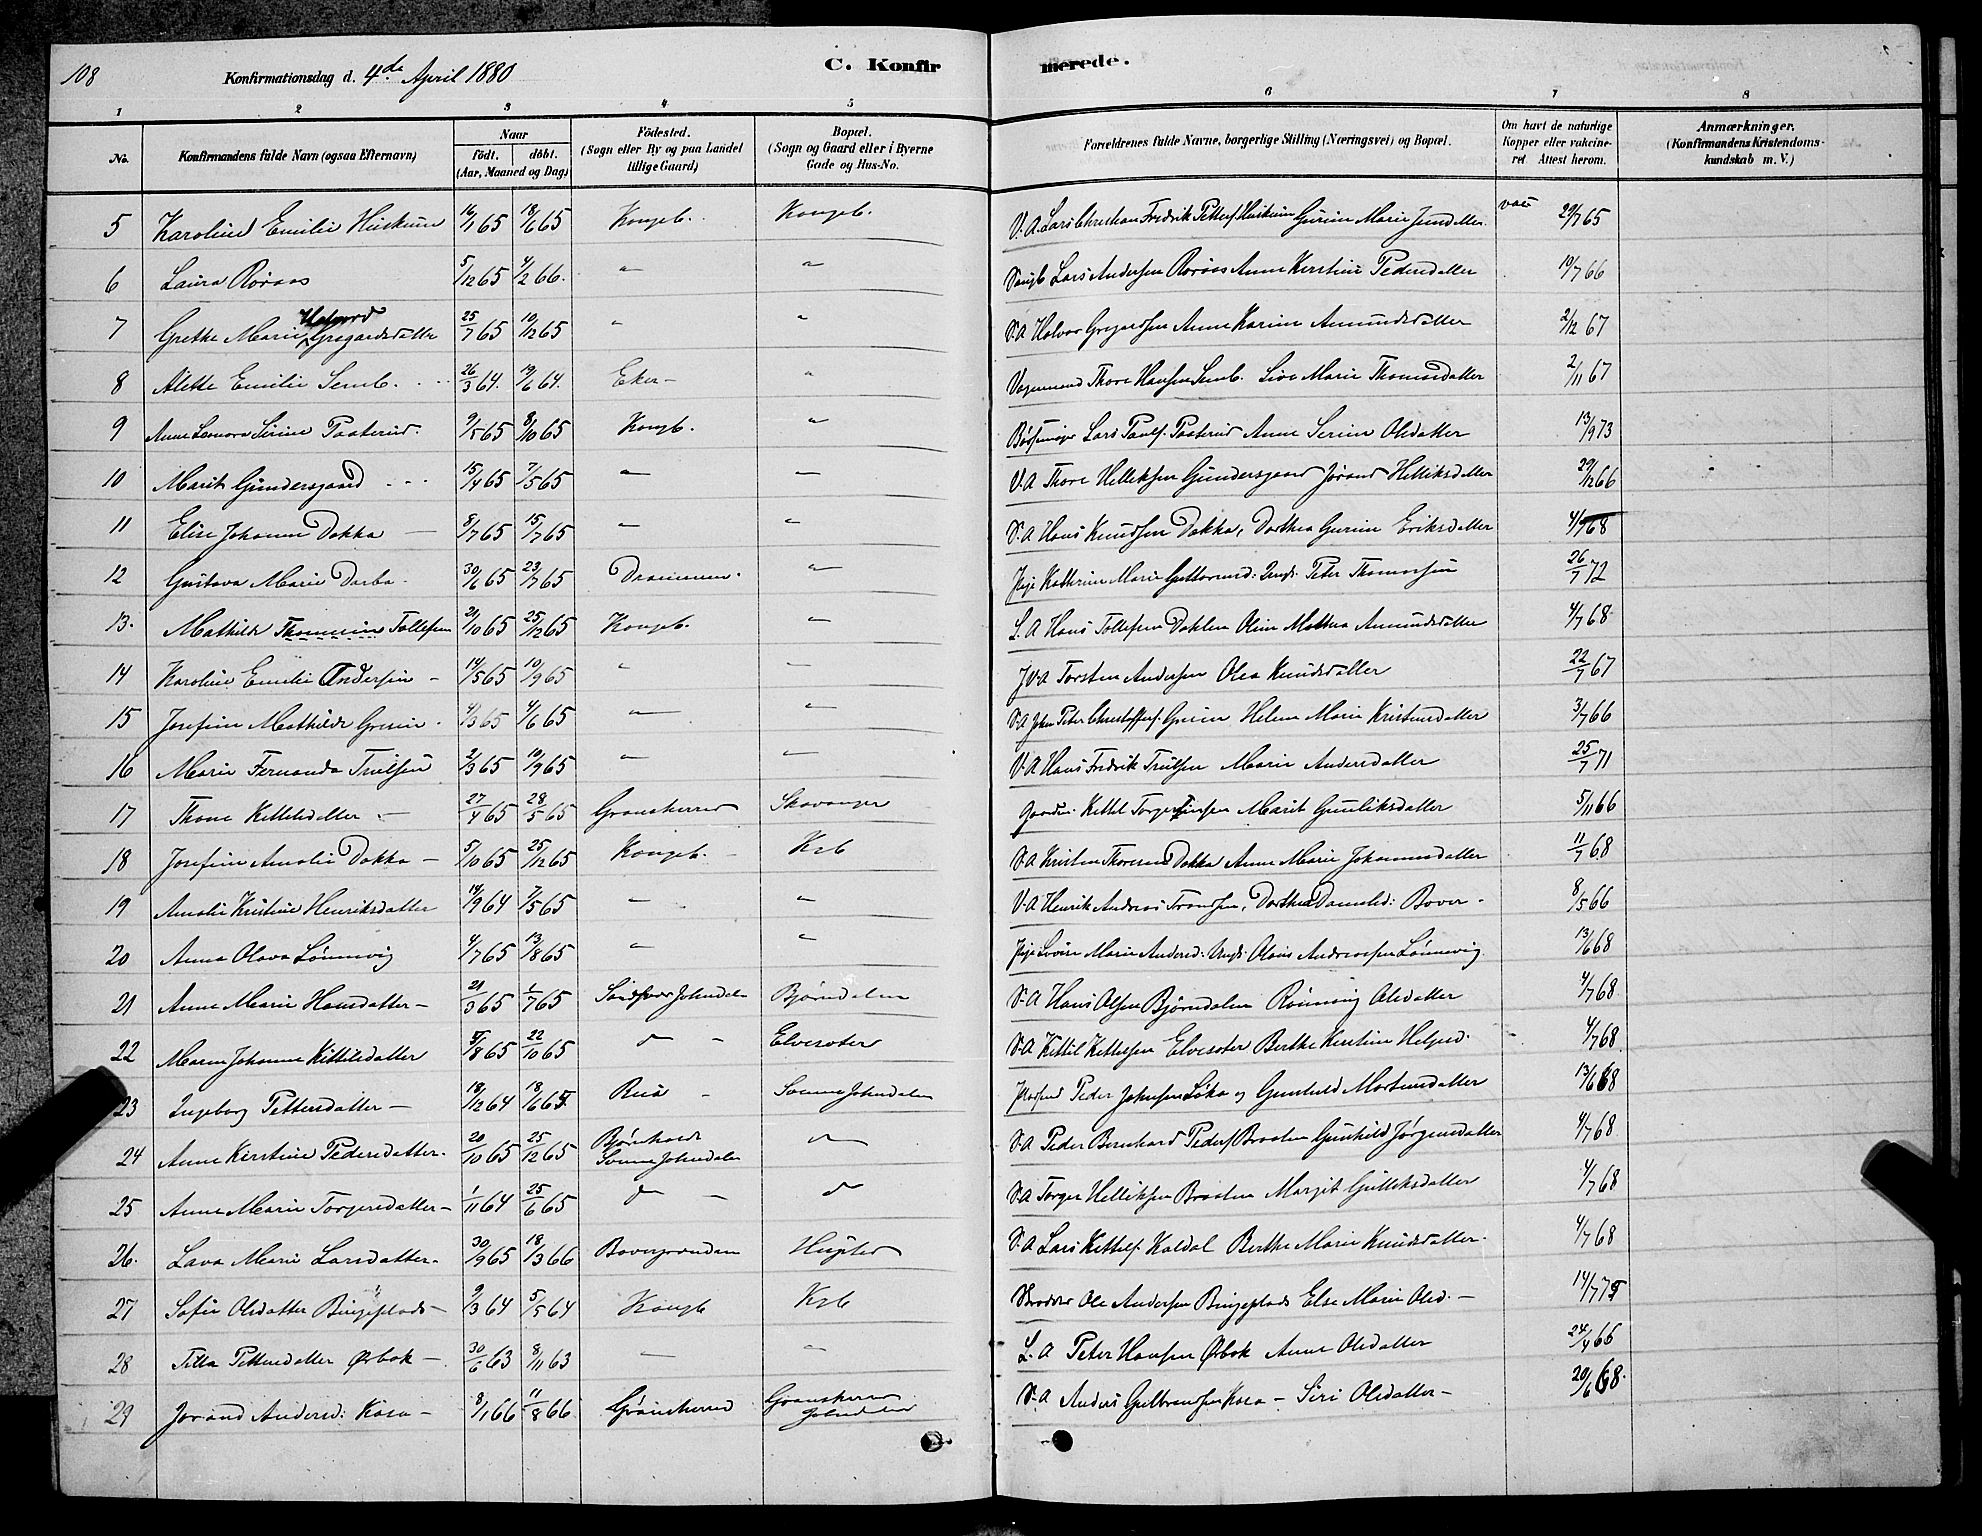 108 Konfirmationsdag d. 4de April 1880 C. Konfirmerede.
1 2 3 4 5 6 7 8
No. Konfirmandens fulde Navn (ogsaa Efternavn) Naar født. døbt. (Aar, Maaned og Dag) Födested. (Sogn eller By og paa Landet tillige Gaard) Bopæl. (Sogn og Gaard eller i Byerne Gade og Hus-No. Forældrenes fulde Navne, borgerlige Stilling (Næringsvei) og Bopæl. Om havt de naturlige Kopper eller vakcineret Attest herom. Anmærkninger. (Konfirmandens Kristendomskundskab m. V.)
5 Karoline Emilie Huskum 16/1 65 18/6 65 Kongsb. Kongsb. V.A. Lars Christian Fredrik Petters. Huskum Gurine Marie Jensdatter vac 29/7 65
6 Laura Røraas 5/12 65 4/2 66. " " Lars Andersen Røraas Anne Kerstine Pedersdatter 19/7 66
7 Grethe Marie Halvord Gregardsdatter 25/7 65 10/12 65 " " V.A Halvor Gregardsen Anne Karine Amundsdatter 2/12 67
8 Alette Emilie Semb. 26/3 64. 19/6 64. Eker - " Vognmand Thore Hansen Semb. Live Marie Thomasdatter 2/11 67
9 Anne Leonora Sirine Paaterud. 9/5 65 8/10 65 Kongsb. " Lars Pauls. Paaterud Anne Serine Olsdatter 13/9 73
10 Marit Gundersgaard - - - 15/4 65 7/5 65 " " V.A Thore Helleksen Gundersgaard Jorand Helliksdatter 29/12 66
11 Elise Johanne Dokka - 8/7 65 15/7 65 " " V.A Hans Knudsen Dokka, Dorthea Gurine Eriksdatter 4/7 68
12 Gustava Marie Darbo. 30/6 65 23/7 65 Drammen. " Pige Kathrine Marie Guttormsd: Ungk. Peter Thomassen 26/7 72
13. Mathilde Thomine Tollefsen 21/10 65 25/12 65 Kongsb. " S.A Hans Tollefsen Dahlen Oline Mathea Amundsdatter 4/7 68.
14 Karoline Emilie Andersen - 14/5 65 10/9 65 " " JVA Torsten Andersen Olea Knudsdatter 22/7 67
15 Josefine Mathilde Green. 4/3 65 4/6 65 " " V.A John Peter Christoffers. Green Helene Marie Kristensdatter 3/7 66
16 Marie Fernanda Trulsen 2/3 65 10/9 65 " " V.A Hans Fredrik Trulsen Marie Andersdatter 25/7 71
17 Thone Kettilsdatter - 27/4 65 28/5 65 Gransherred Skavanger Kettil Torgersen Marit Gunliksdatter 5/11 66
18 Josefine Amalie Dokka - 5/10 65 25/12 65 Kongsb. - Kgb V.A Kristen Thoresen Dokka Anne Marie Johannesdatter 11/7 68
19 Amalie Kristine Henriksdatter 14/9 64 7/5 65 " " V.A Henrik Andreas Fransen, Dorthea Danielsd: Bover - 8/5 66
20 Anna Olava Lønnevig 4/7 65 13/8 65 " " Pige Lovise Marie Andersd. Ungk: Olaus Andreassen Lønnevig. 13/6 68
21 Anne Marie Hansdatter - 21/3 65 1/7 65 Johndalen Bjørndalen V.A Hans Olsen Bjørndalen Rønnaug Olsdatter 4/7 68
22 Maren Johanne Kittilsdatter 5/8 65 22/10 65 d - Elveseter V.A Kittil Kettilsen Elveseter Berthe Kerstine Helgesd. 4/7 68
23 Ingeborg Pettersdatter - 18/12 64 18/6 65 Rua - Svenne Johndalen Peder Johnsen Løka og Gunhild Mortensdatter 13/6 68
24 Anne Kerstine Pedersdatter. 20/10 65 25/12 65 Svenne Johndalen d V.A Peder Bernhard Peders. Braaten Gunhild Jørgensdatter 4/7 68
25 Anne Marie Torgersdatter - 1/11 64 25/6 65 d - d V.A Torger Helliksen Braaten Margit Gulliksdatter 4/7 68
26. Lava Marie Larsdatter. 30/9 65 18/3 66 Bovergrenden V.A Lars Kettils. Kaldal Berthe Marie Knudsdatter. 4/7 68
27 Sofie Olsdatter Bingeplads - 9/3 64 5/5 64 Kongsb Kgb Skræder Ole Andersen Bingeplads Else Marie Olsd. - 14/7 75
28 Tilla Pettersdatter Ørbæk - 30/6 63 8/11 63 - " L. A Peter Hansen Ørbæk Anne Olsdatter 24/4 66
29 Jorand Andersd: Kasa - 8/1 66 11/8 66 Gransherred Gransherred Johndalen V.A Anders Gulbrandsen Kasa - Siri Olsdatter - 20/6 68.